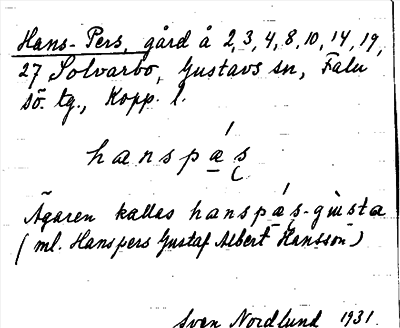 Hans-Pers, gård å 2, 3, 4, 8, 10, 14, 19,
27 Solvarbo, Gustavs sn, Falu
sö. tg., Kopp. l.
hanspá̱ş
Ägaren kallas hanspá̱s-gùsta
(ml. Hanspers Gustaf Albert Hansson)
Sven Nordlund 1931.